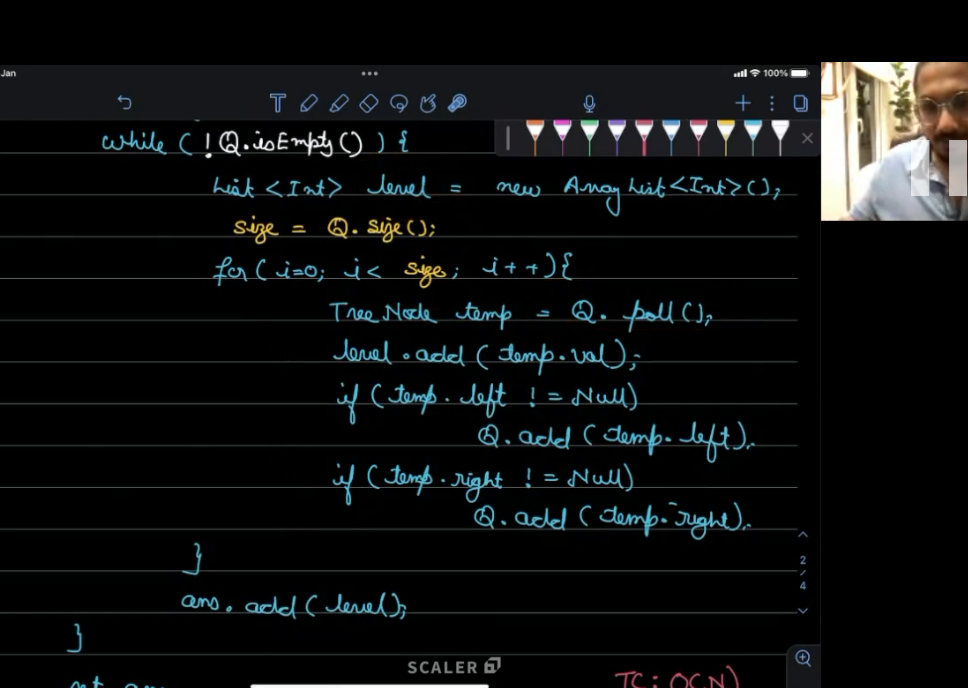 Jan
100%
while ( ! Q.isEmpty() ) {
List <Int> level = new ArrayList<Int>();
size = Q.size();
for ( i=0; i < size; i++ ) {
TreeNode temp = Q. poll();
level.add (temp.val);
if (temp.left != Null)
Q.add (temp.left).
if (temp.right != Null)
Q.add (temp.right).
}
2
/
4
ans.add (level);
}
SCALER
TC: O(N)